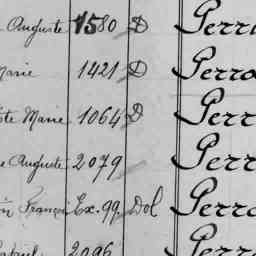 Auguste 1580 D Perr
Marie 1421 D Perro
te Marie 1064 D Perr
e Auguste 2079 Perr
in François Ex. 99 Dol Perro
2096 Perr